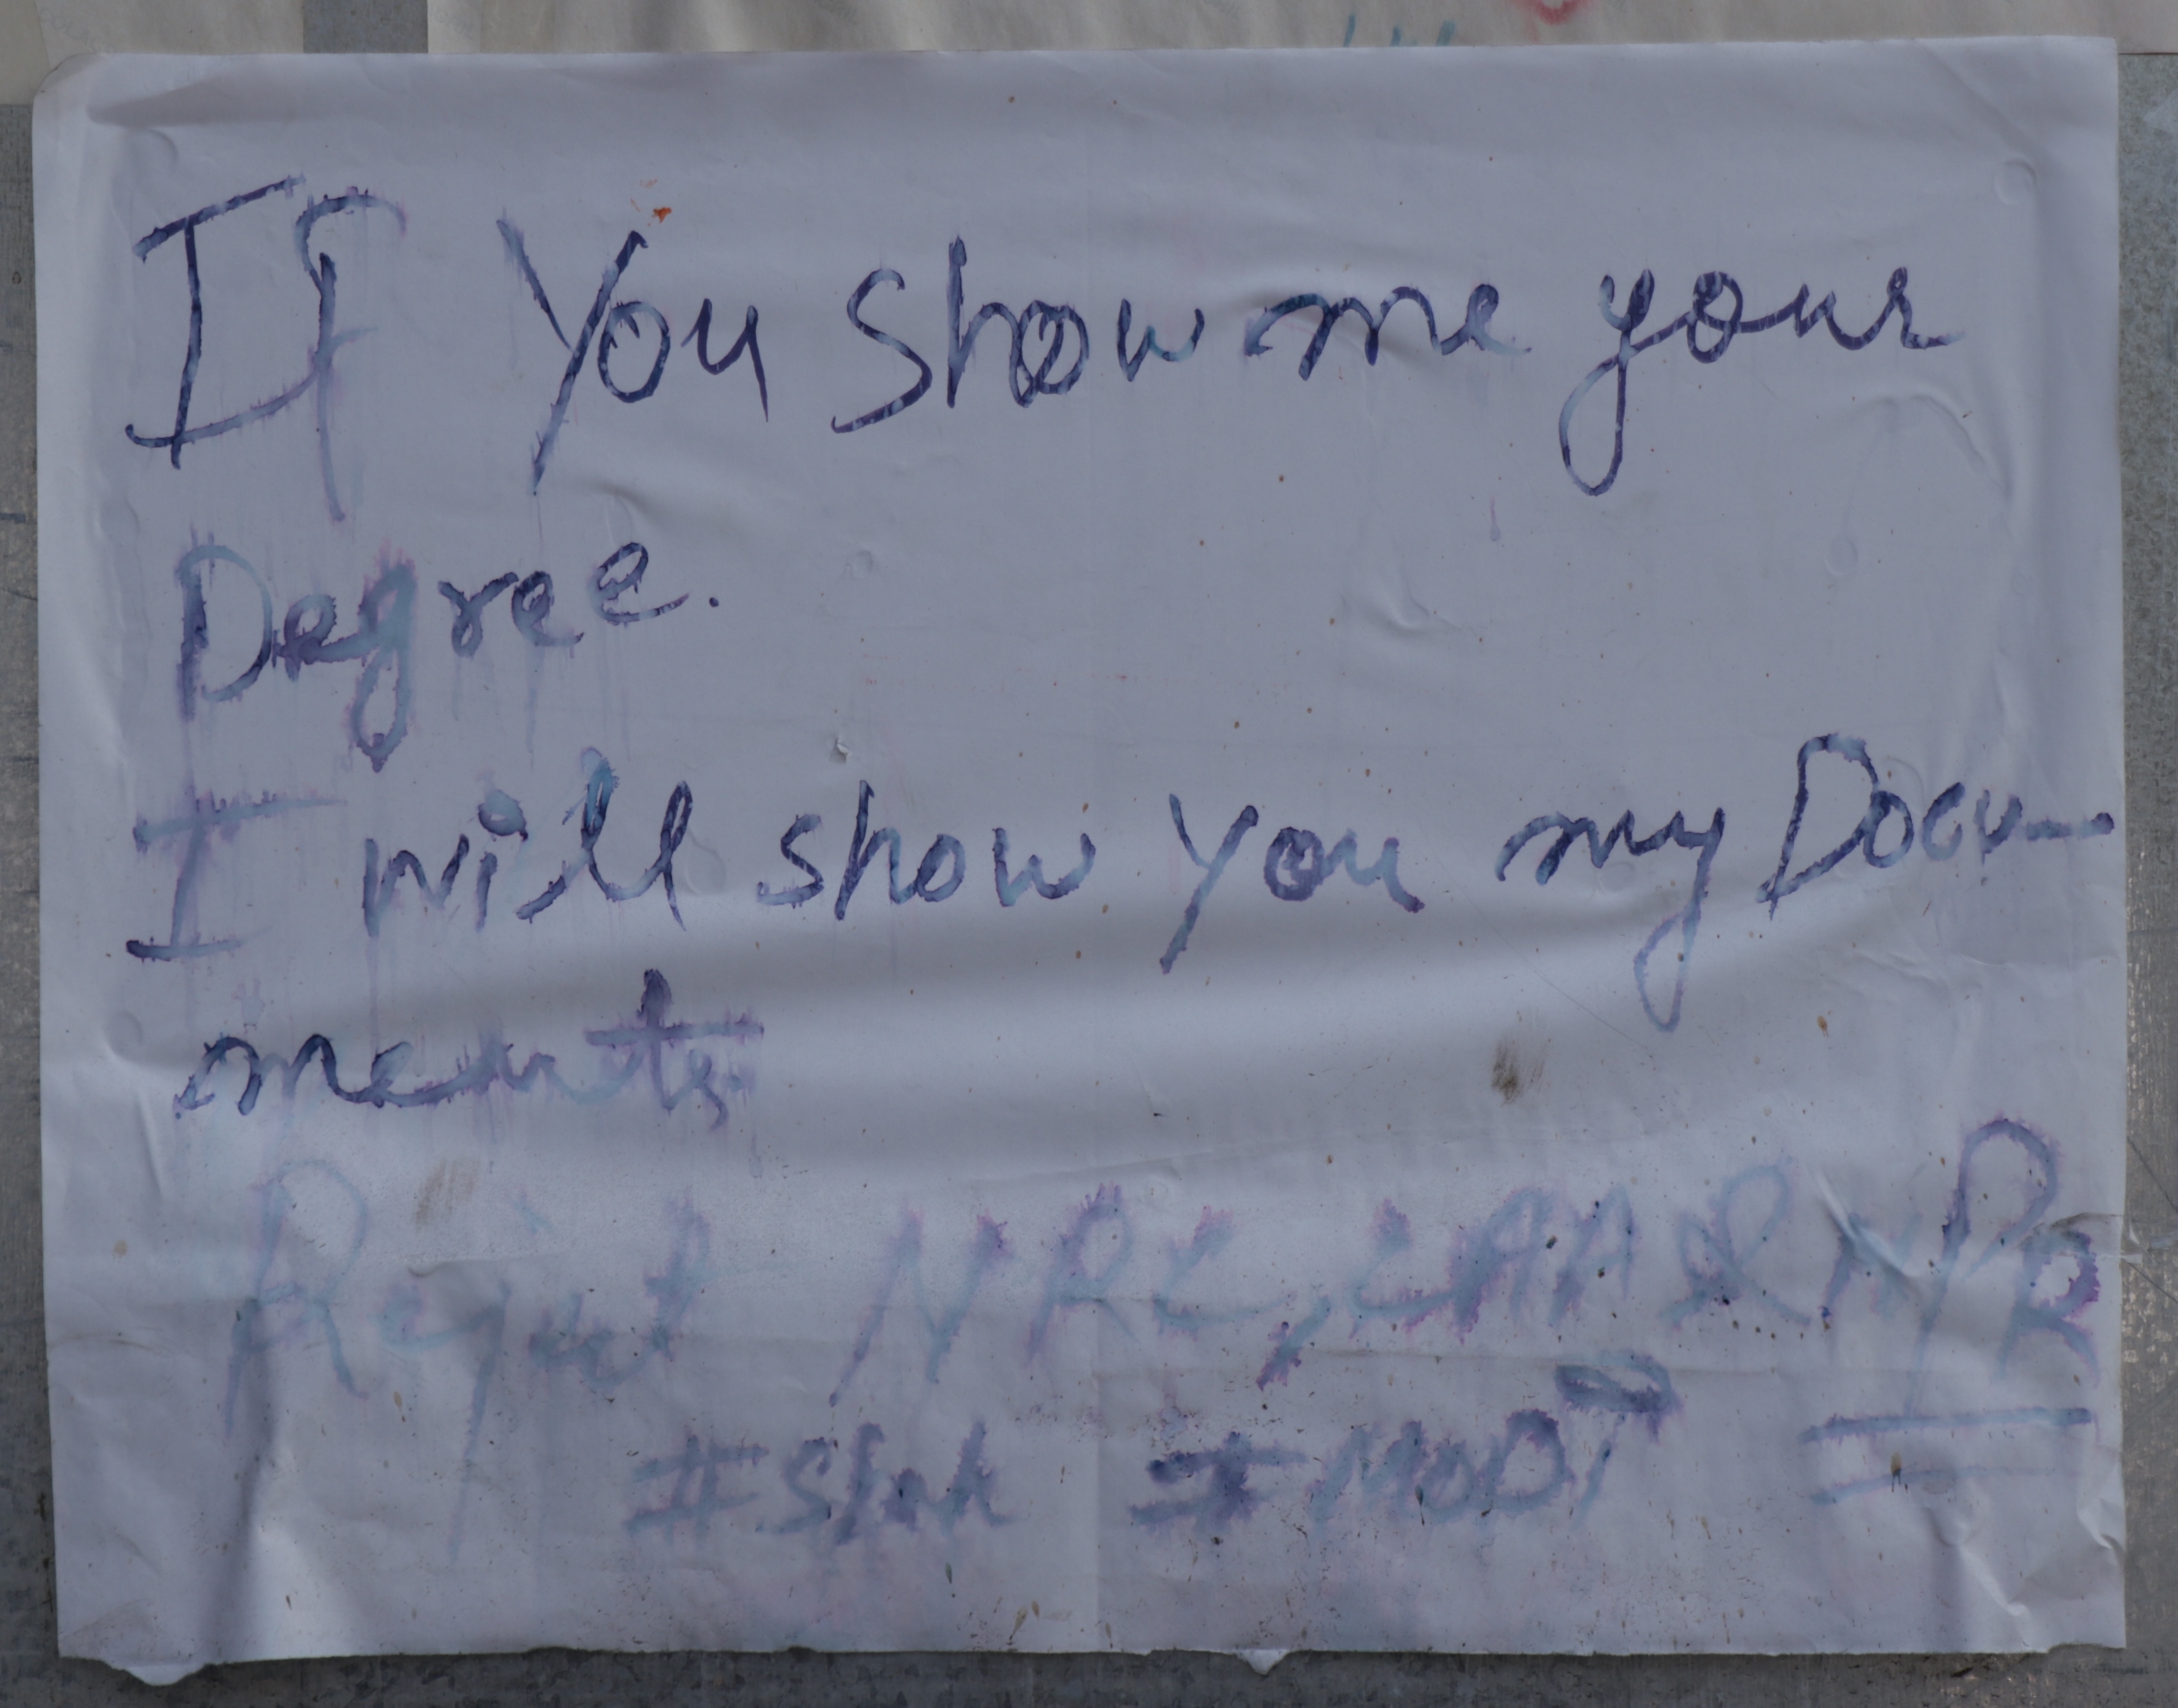 If You Show me your
Degree.
I will show you my Docu-
ments
Reject NRC, CAA & NPR
#Shah #MODI